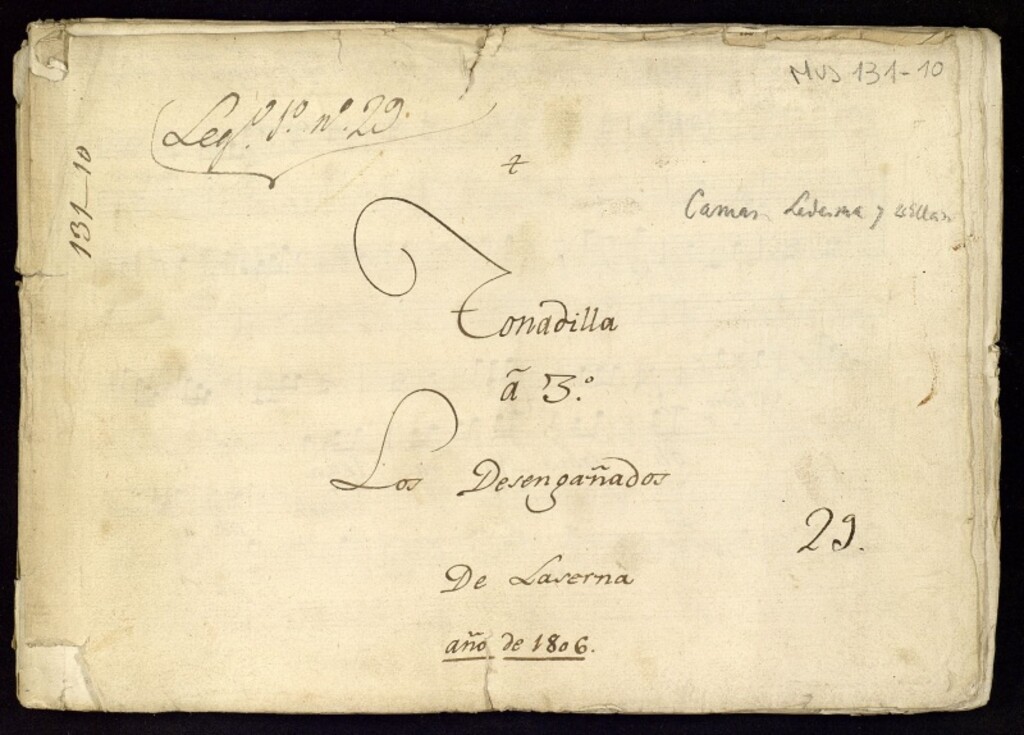 MUS 131-10
Leg.º 1.º n.º 29.
131-10
Camas Ledesma y
Tonadilla
â 3.º
Los Desengañados
29.
De Laserna
año de 1806.